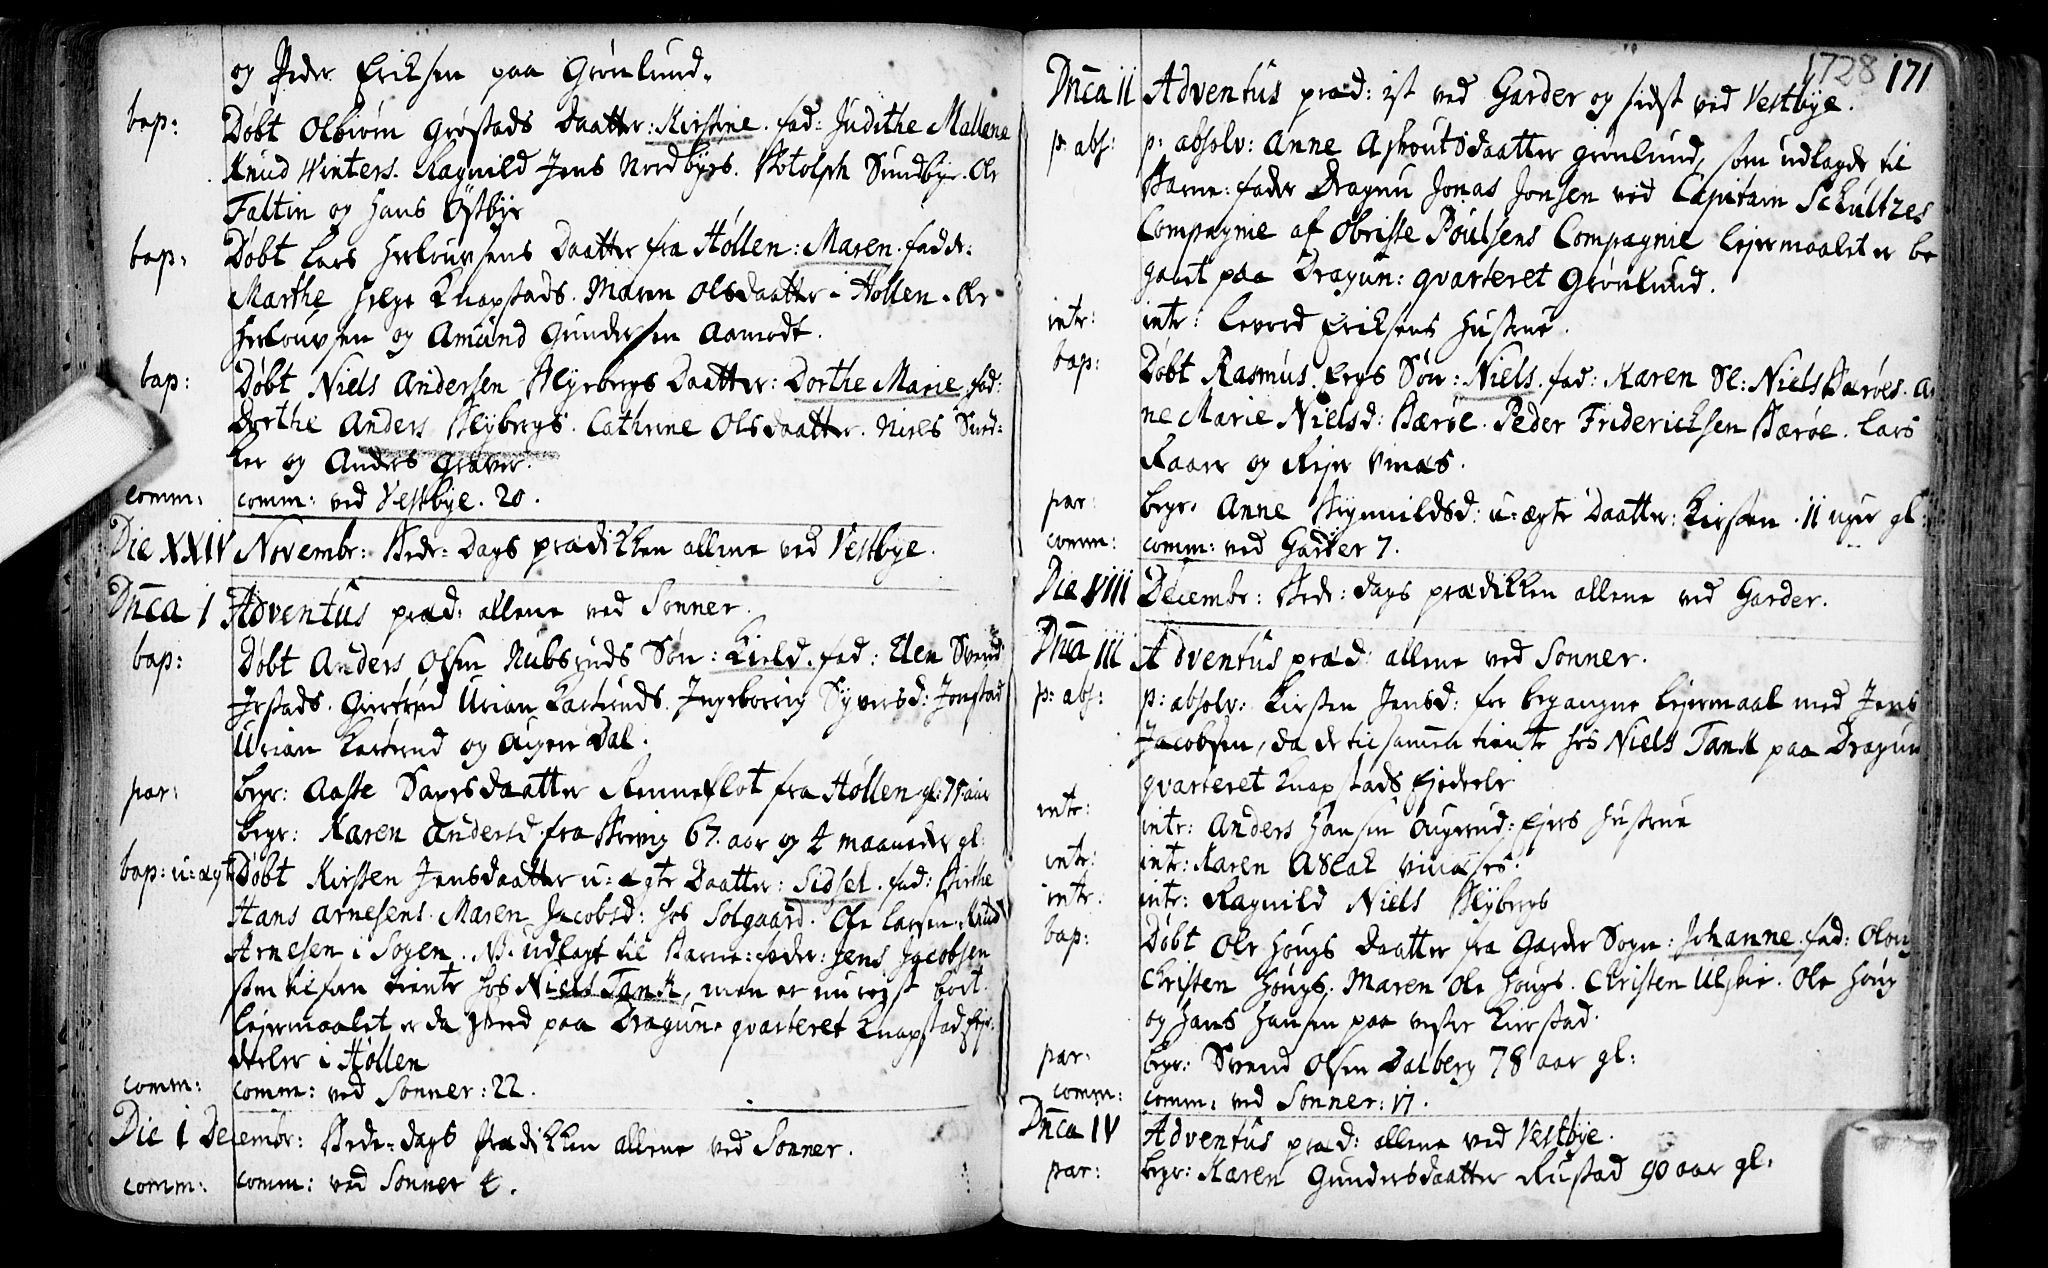 og Peder Eriksen paa Grønlund.
bap: Døbt Olbiørn Grøstads Daatter: Kirstine. fad: Judithe Mallene
Knud Winters. Ragnild Jens Nordbyes. Botolph Sundbye. Ole
Faltin og Hans Østbye
bap: Døbt Lars Herlouvsens Daatter fra Høllen: Maren. fadr:
Marthe Helge Knapstads. Maren Olsdaatter i Høllen. Ole
Herlouvsen og Amund Gundersen Aamodt.
bap: Døbt Niels Andersen Blybergs Daatter: Dorthe Marie. fad:
Dorthe Anders Blybergs. Cathrine Olsdaatter. Niels Sned-
ker og Anders Graver.
comm: comm: ved Vestbye. 20.
Die XXIV Novembr: Bede-Dags prædikken allene ved Vestbye.
Dnca I Adventus præd: allene ved Sonner.
bap: Døbt Anders Olsen Rubsruds Søn: Kield. fad: Elen Svend
Jrstads. Giertrud Urian Karlsruds. Ingeborrig Syversd: Jonstad
Urian Karlsrud og Augen Dal.
par: begr: Aasse Sauersdaatter Renneflot fra Høllen gl: 75 aar
begr: Karen Andersd. fra Berrig 67 aar og 4 maaneder gl:
bap: u=ægte Døbt Kirsten Jensdaatter u=ægte Daatter: Sidsel. fad: Birthe
Hans Arnesens. Maren Jacobsd: hos Solgaard. Ole Larsen. Knud
Arnesen i Sogen. NB. udlagt til Barne-fader: Jens Jacobsen
som tilforn tiente hos Niels Tank, men er nu reist bort.
lejermaalet er da skeed paa Dragun-qvarteret Knapstad Fje-
derler i Høllen
comm: comm: ved Sonner: 22.
Die I Decembr: Bede-dags prædikken allene ved Sonner.
comm: comm: ved Sonner 4.
1728 171
Dnca II Adventus præd: 1st ved Garder og sidst ved Vestbye.
p: abs: p: absolv: Anne Asloutsdaatter Grønlund, som udlagde til
Barne-fader Dragun Jonas Jonsen ved Capitain Schultzes
Compagnie af Obriste Poulsens Compagnie lejermaalet er be
gaaet paa Dragun-qvarteret Grønlund.
intr: intr: Levord Eriksens Hustrue.
bap: Døbt Rasmus Ergs Søn: Niels. fad: Karen Sl: Niels Bærøes. An
ne Marie Nielsd: Bærøe. Peder Friderichsen Bærøe. Lars
Raaer og Rejer Vinæs.
par: begr. Anne Regnnildsd: u-ægte Daatter: Kirsten. 11 uger gl:
comm: comm: ved Garder 7.
Die VIII Decembr: Bede-dags prædikken allene ved Garder.
Dnca III Adventus præd: allene ved Sonner.
p: abs: p: absolv: Kirsten Jensd: for begangne lejermaal med Jens
Jacobsen, da de tilsammen tiente hos Niels Tank paa Dragun
qvarteret Knapstads Fjederler
intr: intr: Anders Hansen Augerud-Ejers Hustrue
intr: intr: Karen Aslak Vinæsses.
intr: intr: Ragnild Niels Blybergs
bap: Døbt Ole Hougs Daatter fra Garder Sogn: Johanne. fad: Olou
Christen Hougs. Maren Ole Hougs. Christen Ulsbie. Ole Houg
og Hans Hansen paa Vester Kierstad.
par: begr: Svend Olsen Dalberg 78 aar gl:
comm: comm: ved Sonner: 17.
Dnca IV Adventus præd: allene ved Vestbye.
par: begr: Karen Gundersdaatter Rustad 90 aar gl: